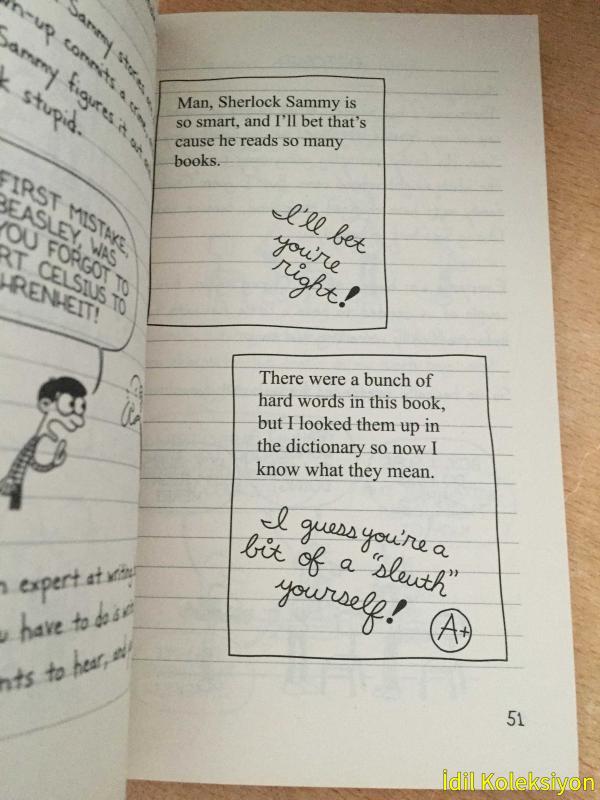 Sammy stories
n-up commits a crime
Sammy figures it out
k stupid.
FIRST MISTAKE,
BEASLEY, WAS
YOU FORGOT TO
RT CELSIUS TO
HRENHEIT!
n expert at writing
u have to do is
nts to hear, and
Man, Sherlock Sammy is
so smart, and I'll bet that's
cause he reads so many
books.
I'll bet
you're
right!
There were a bunch of
hard words in this book,
but I looked them up in
the dictionary so now I
know what they mean.
I guess you're a
bit of a "sleuth"
yourself!
A+
51
İdil Koleksiyon